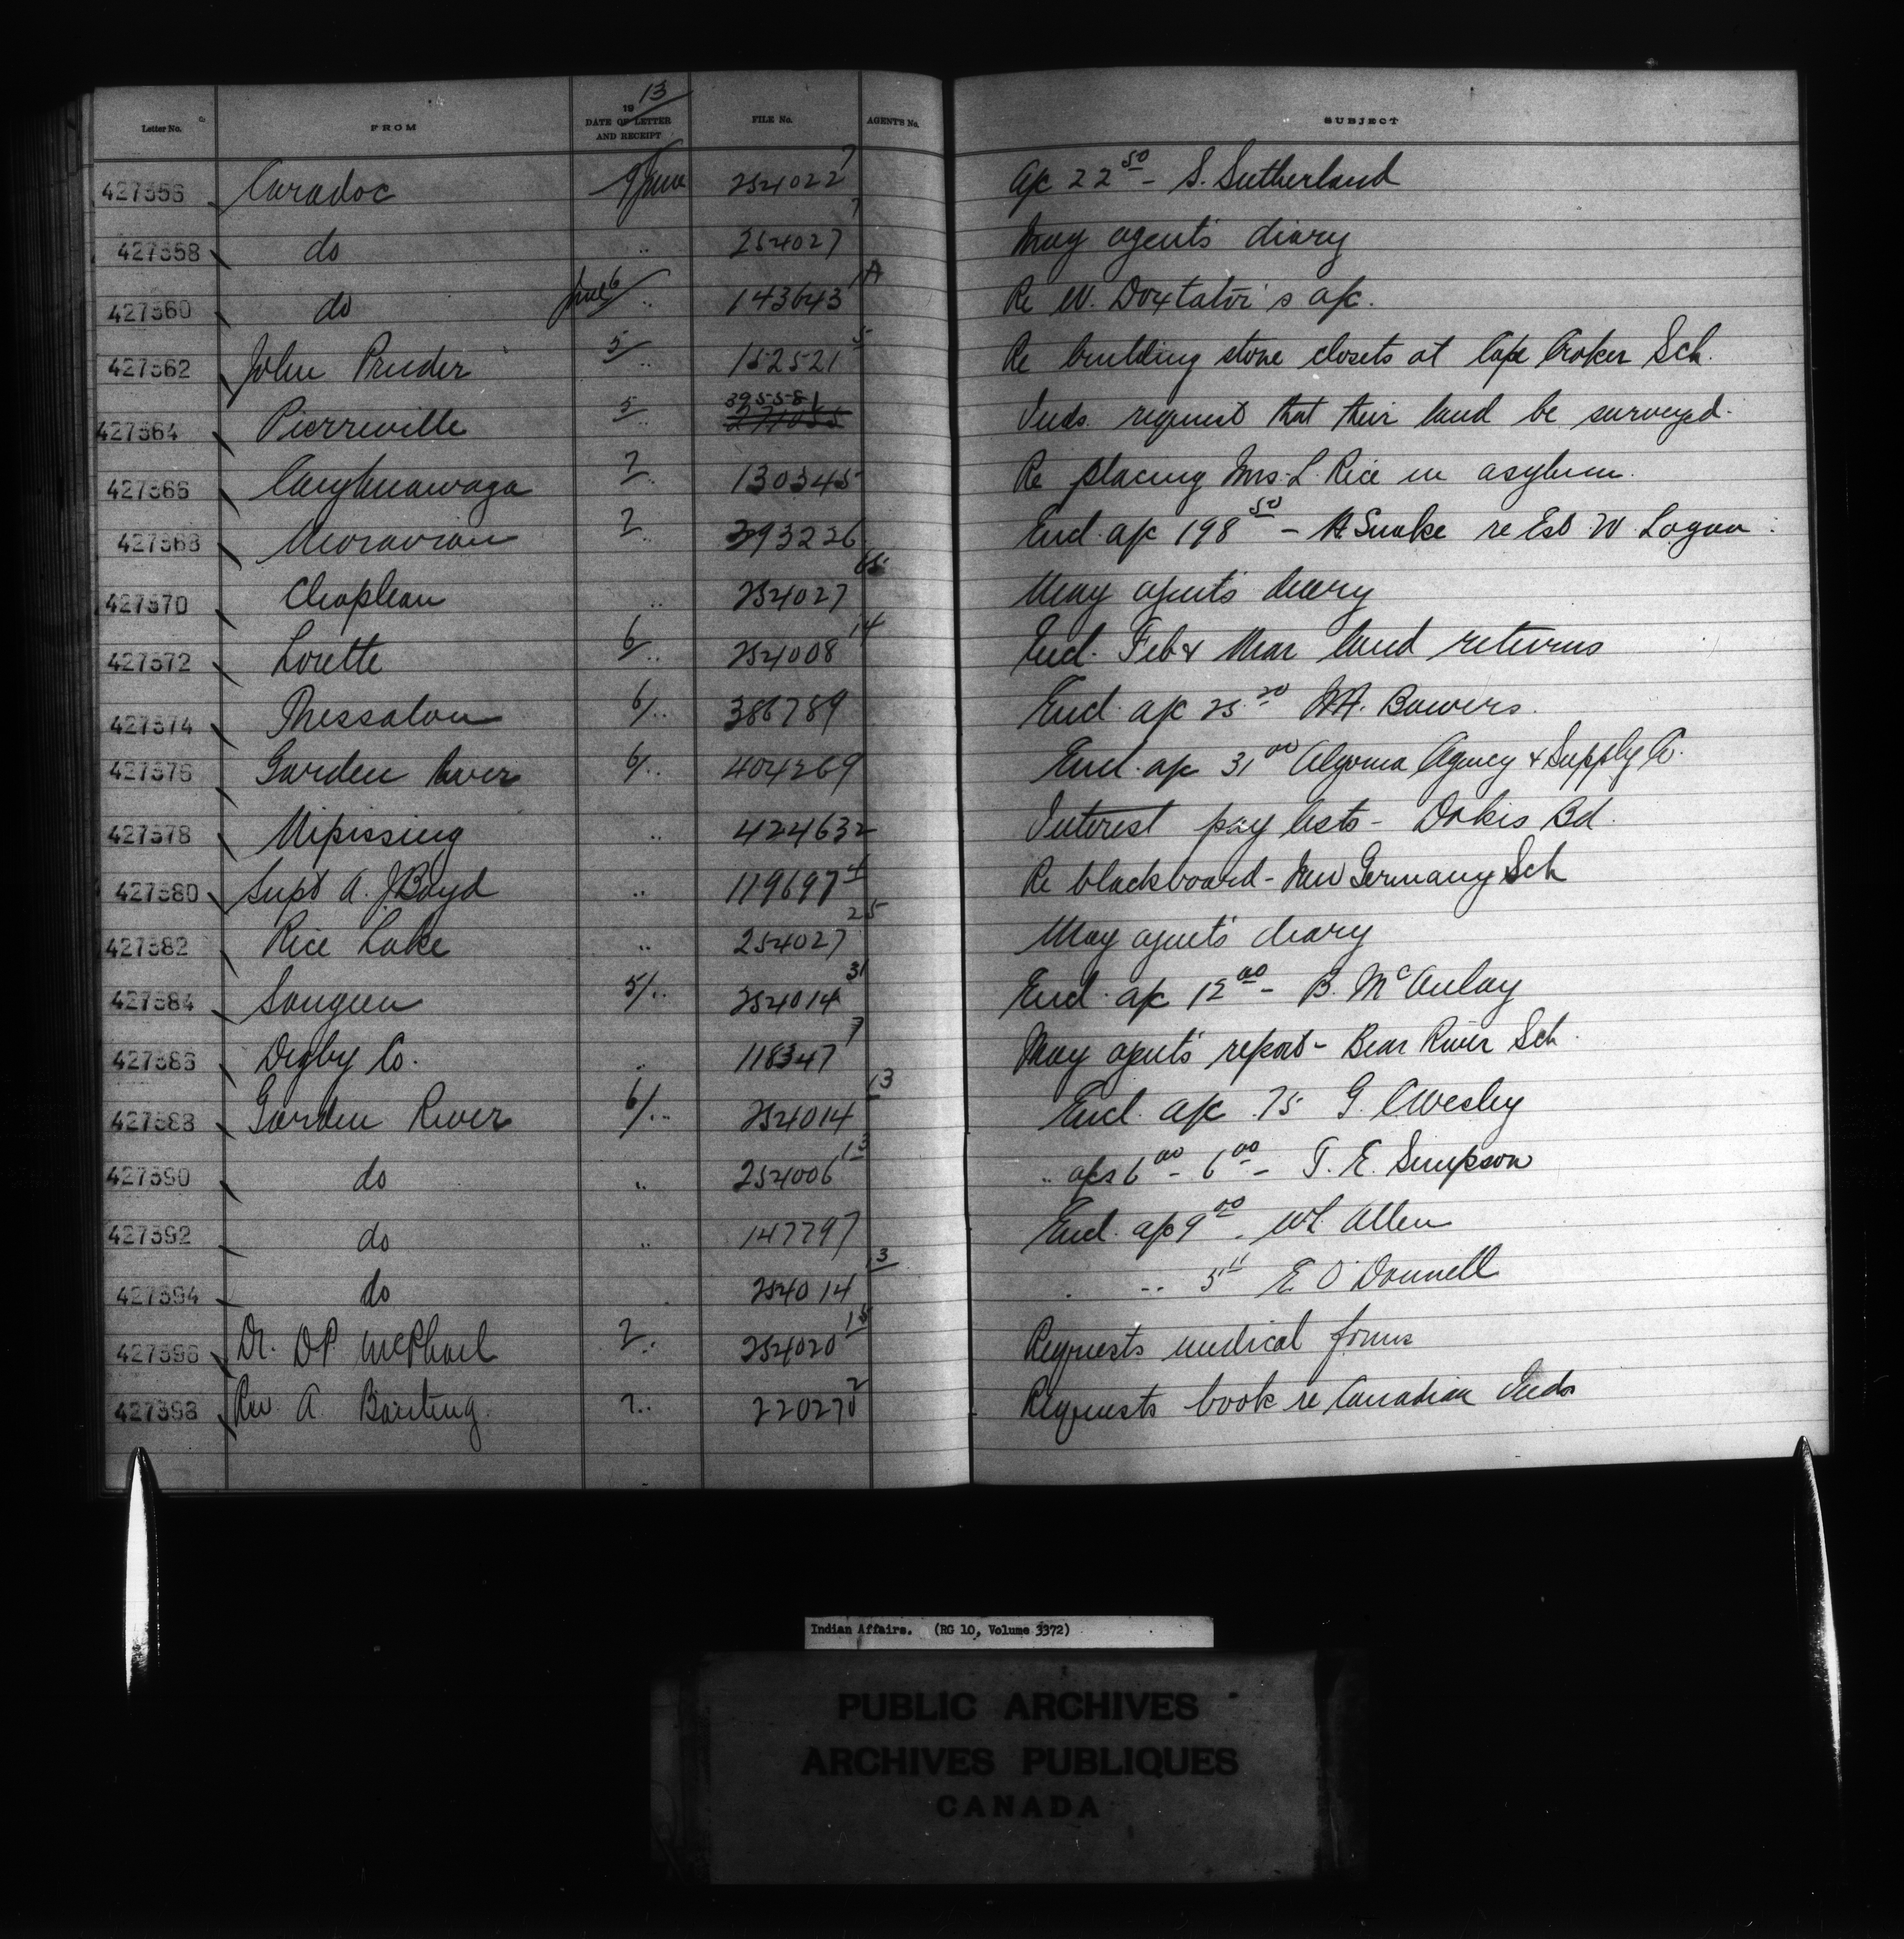 13
Letter No. FROM 19 DATE OF LETTER AND RECEIPT FILE No. AGENTS No. SUBJECT
427356 Caradoc 9 June 254022 7 a/c 22 50 - S. Sutherland
427358 do " 254027 7 May agent's diary
427360 do June 6 " 143643 1A Re W. Doxtator's a/c.
427362 John Pruder 5 " 152521 5 Re building stone closets at Cape Croker Sch.
427364 Pierreville 5 " 395581 Inds. request that their land be surveyed.
427366 Caughnawaga 7 " 130345 Re placing Mrs. L. Rice in asylum.
427368 Moravian 7 " 393226 Encl. a/c 198 50 - Snake re Est W. Logan
427370 Chapleau " 254027 65 May agent's diary
427372 Lorette 6 " 254008 14 Encl. Feb & Mar land returns
427374 Thessalon 6/ " 386789 Encl. a/c 25 20 Bowers.
427376 Garden River 6/ " 404269 Encl. a/c 31 00 Algoma Agency & Supply Co.
427378 Nipissing " 424632 Interest pay lists - Dokis Bd.
427380 Supt A. J. Boyd " 119697 4 Re blackboard - New Germany Sch
427382 Rice Lake " 254027 25 May agent's diary
427384 Saugeen 5/ " 254014 31 Encl. a/c 12 00 - B. McAulay
427386 Digby Co. " 118347 7 May agent's report - Bear River Sch.
427388 Garden River 6/ " 254014 13 Encl. a/c .75 G.
427390 do " 254006 13 " a/cs 6 00 - 6 00 - T. E. Simpson
427392 do " 147797 Encl. a/c 9 00 - Allen
427394 do 254014 13 " 5 11 E. O'Donnell
427396 Dr. D.P. McPhail 7 " 254020 15 Requests medical forms
427398 Rev. A Banting. 7 " Requests book re Canadian Inds
Indian Affairs. (RG 10, Volume 3372)
PUBLIC ARCHIVES
ARCHIVES PUBLIQUES
CANADA